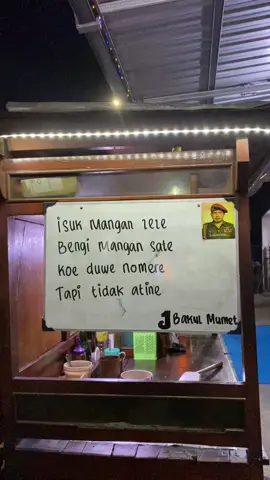 isuk Mangan lele
Bengi Mangan sate
Koe duwe nomere
Tapi tidak atine
Bakul Mumet